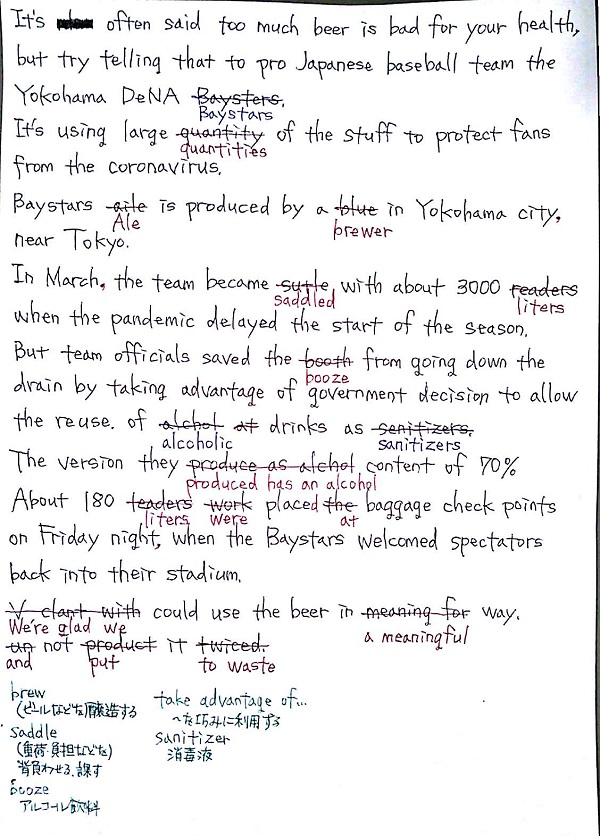 It's often said too much beer is bad for your health,
but try telling that to pro Japanese baseball team the
Yokohama DeNA Baysters.
Baystars
It's using large quantity of the stuff to protect fans
quantities
from the coronavirus.
Baystars aile is produced by a blue in Yokohama city,
Ale brewer
near Tokyo.
In March, the team became sutle, with about 3000 readers
saddled liters
when the pandemic delayed the start of the season.
But team officials saved the booth from going down the
booze
drain by taking advantage of government decision to allow
the reuse. of alchol at drinks as senitizers.
alcoholic sanitizers
The version they produce as alchol content of 70%
produced has an alcohol
About 180 teaders work placed the baggage check points
liters were at
on Friday night, when the Baystars welcomed spectators
back into their stadium.
V clant with could use the beer in meaning for way.
We're glad we a meaningful
un not product it twiced.
and put to waste
brew take advantage of...
(ビールなどを)醸造する ~を巧みに利用する
saddle sanitizer
(重荷・負担などを) 消毒液
背負わせる、課す
booze
アルコール飲料